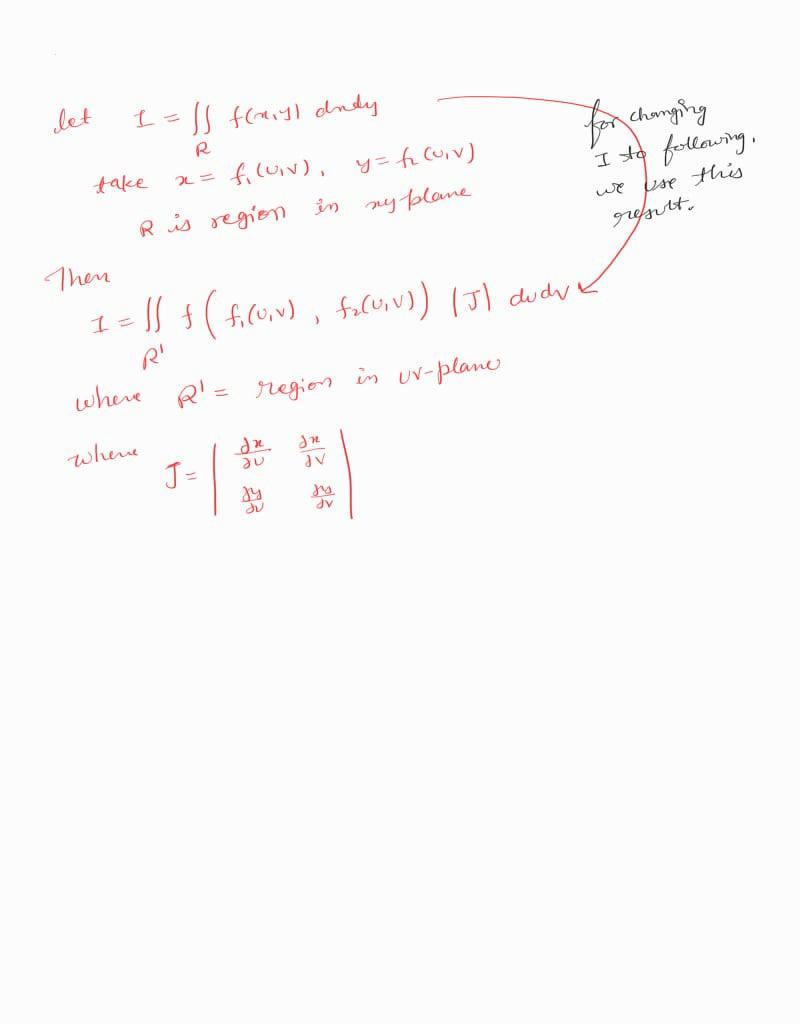 let I = ∬ f(x,y) dxdy
R
take x = f₁(u,v), y = f₂(u,v)
R is region in xy plane
for changing
I to following,
we use this
result.
Then
I = ∬ f ( f₁(u,v) , f₂(u,v) ) |J| dudv
R'
where R' = region in uv-plane
where J = | ∂x/∂u ∂x/∂v |
| ∂y/∂u ∂y/∂v |